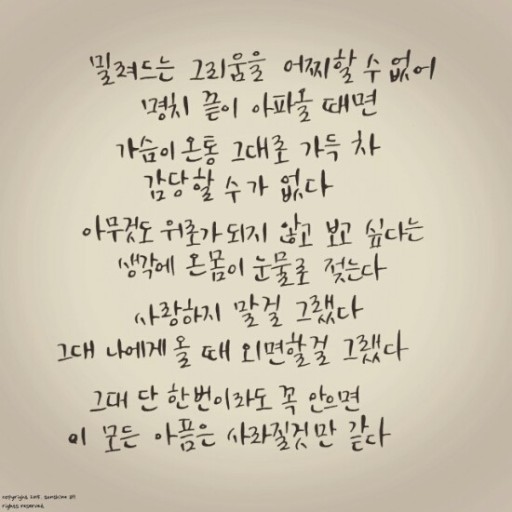 밀려드는 그리움을 어찌할 수 없어
명치 끝이 아파올 때면
가슴이 온통 그대로 가득 차
감당할 수가 없다
아무것도 위로가 되지 않고 보고 싶다는
생각에 온몸이 눈물로 젖는다
사랑하지 말걸 그랬다
그대 나에게 올 때 외면할걸 그랬다
그대 단 한번이라도 꼭 안으면
이 모든 아픔은 사라질것만 같다
copyright
rights reserved.